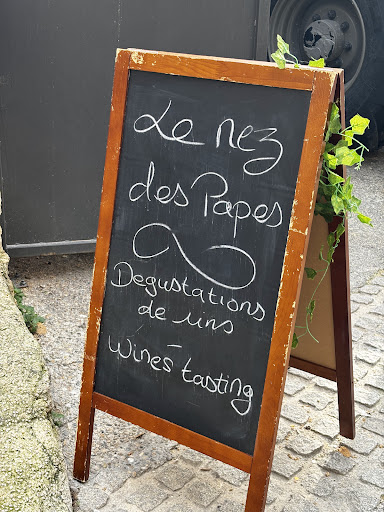 Le nez
des Papes
Degustations
de vins
-
Wines tasting